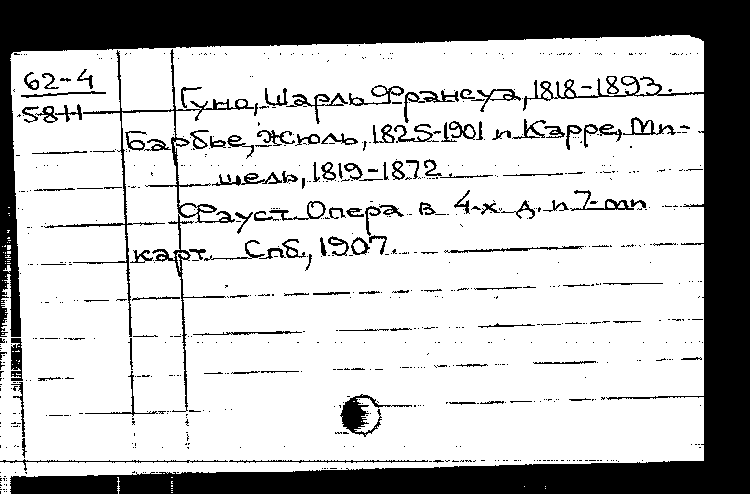 62-4
5811
Гуно, Шарль Франсуа, 1818-1893.
Барбье, Жюль, 1825-1901 и Карре, Ми-
шель, 1819-1872.
Фауст. Опера в 4-х д. и 7-ми
карт. Спб., 1907.